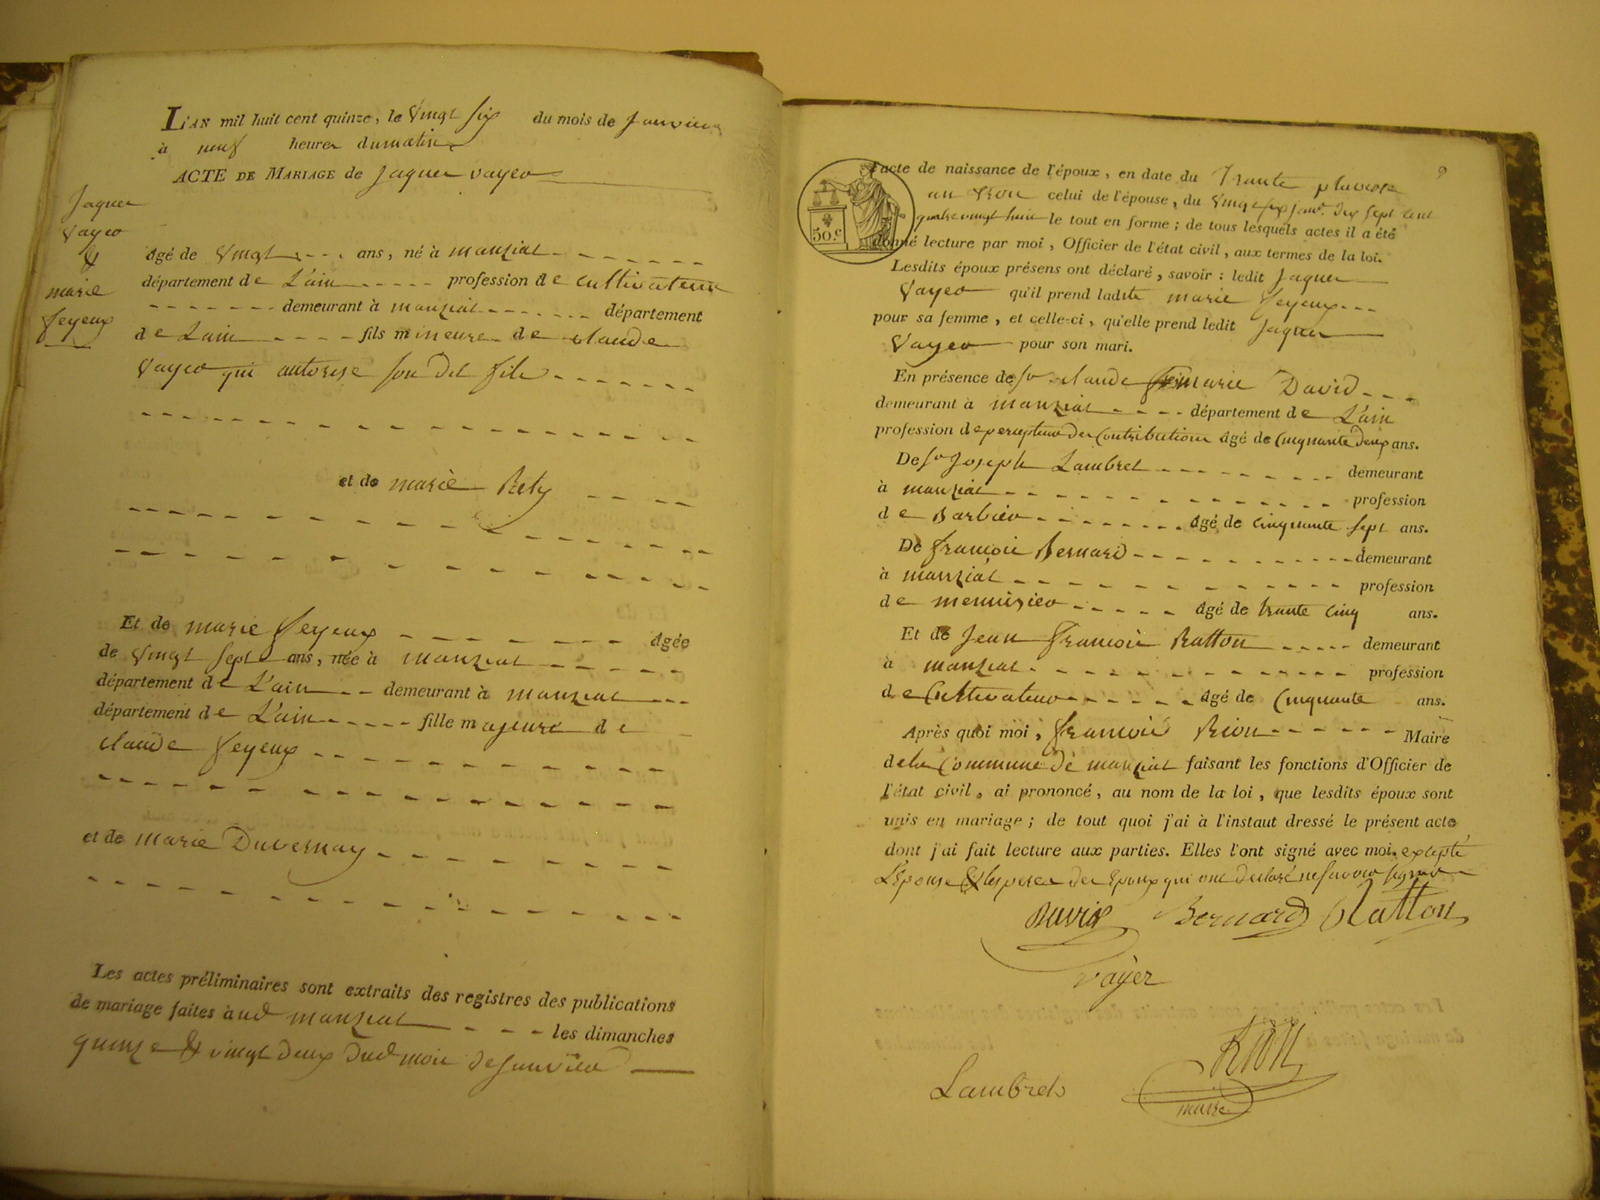 L'AN mil huit cent quinze, le Vingt Six du mois de Janvier
à neuf heures du matin
ACTE DE MARIAGE de Jaques Vayer
Jaques
Vayer
&
marie
feyeux
âgé de Vingt ans, né à manziat
département de L'ain profession de cultivateur
demeurant à manziat département
de Lain fils mineure de claude
Vayer qui autorise son dit fils
et de marie Rety
Et de marie feyeux âgée
de Vingt Sept ans, née à manziat
département de L'ain demeurant à manziat
département de L'ain fille majeure de
claude feyeux
et de marie Duvernay
Les actes préliminaires sont extraits des registres des publications
de mariage faites aud manziat les dimanches
quinze & vingt deux dud mois de Janvier
50.c
l'acte de naissance de l'époux, en date du Trante pluviose
an Trois celui de l'épouse, du Vingt six janv. dix sept cent
quatre vingt huit le tout en forme ; de tous lesquels actes il a été
donné lecture par moi, Officier de l'état civil, aux termes de la loi.
Lesdits époux présens ont déclaré, savoir : ledit Jaques
Vayer qu'il prend ladite marie feyeux
pour sa femme, et celle-ci, qu'elle prend ledit Jaques
Vayer pour son mari.
En présence de Sr claude marie David
demeurant à manziat département de L'ain
profession de percepteur des Contributions âgé de Cinquante deux ans.
De Sr Joseph Lambret demeurant
à manziat profession
de Barbier âgé de cinquante sept ans.
De françois Bernard demeurant
à manziat profession
de menuisier âgé de trante cinq ans.
Et de Jean françois Ratton demeurant
à manziat profession
de Cultivateur âgé de Cinquante ans.
Après quoi moi, françois Rion Maire
de la Commune de manziat faisant les fonctions d'Officier de
l'état civil, ai prononcé, au nom de la loi, que lesdits époux sont
unis en mariage ; de tout quoi j'ai à l'instant dressé le présent acte
dont j'ai fait lecture aux parties. Elles l'ont signé avec moi, exepté
L'Épouse & les peres des Epoux qui ont declaré ne savoir signer
David Bernard Ratton
Vayer
Rion
Lambret
maire